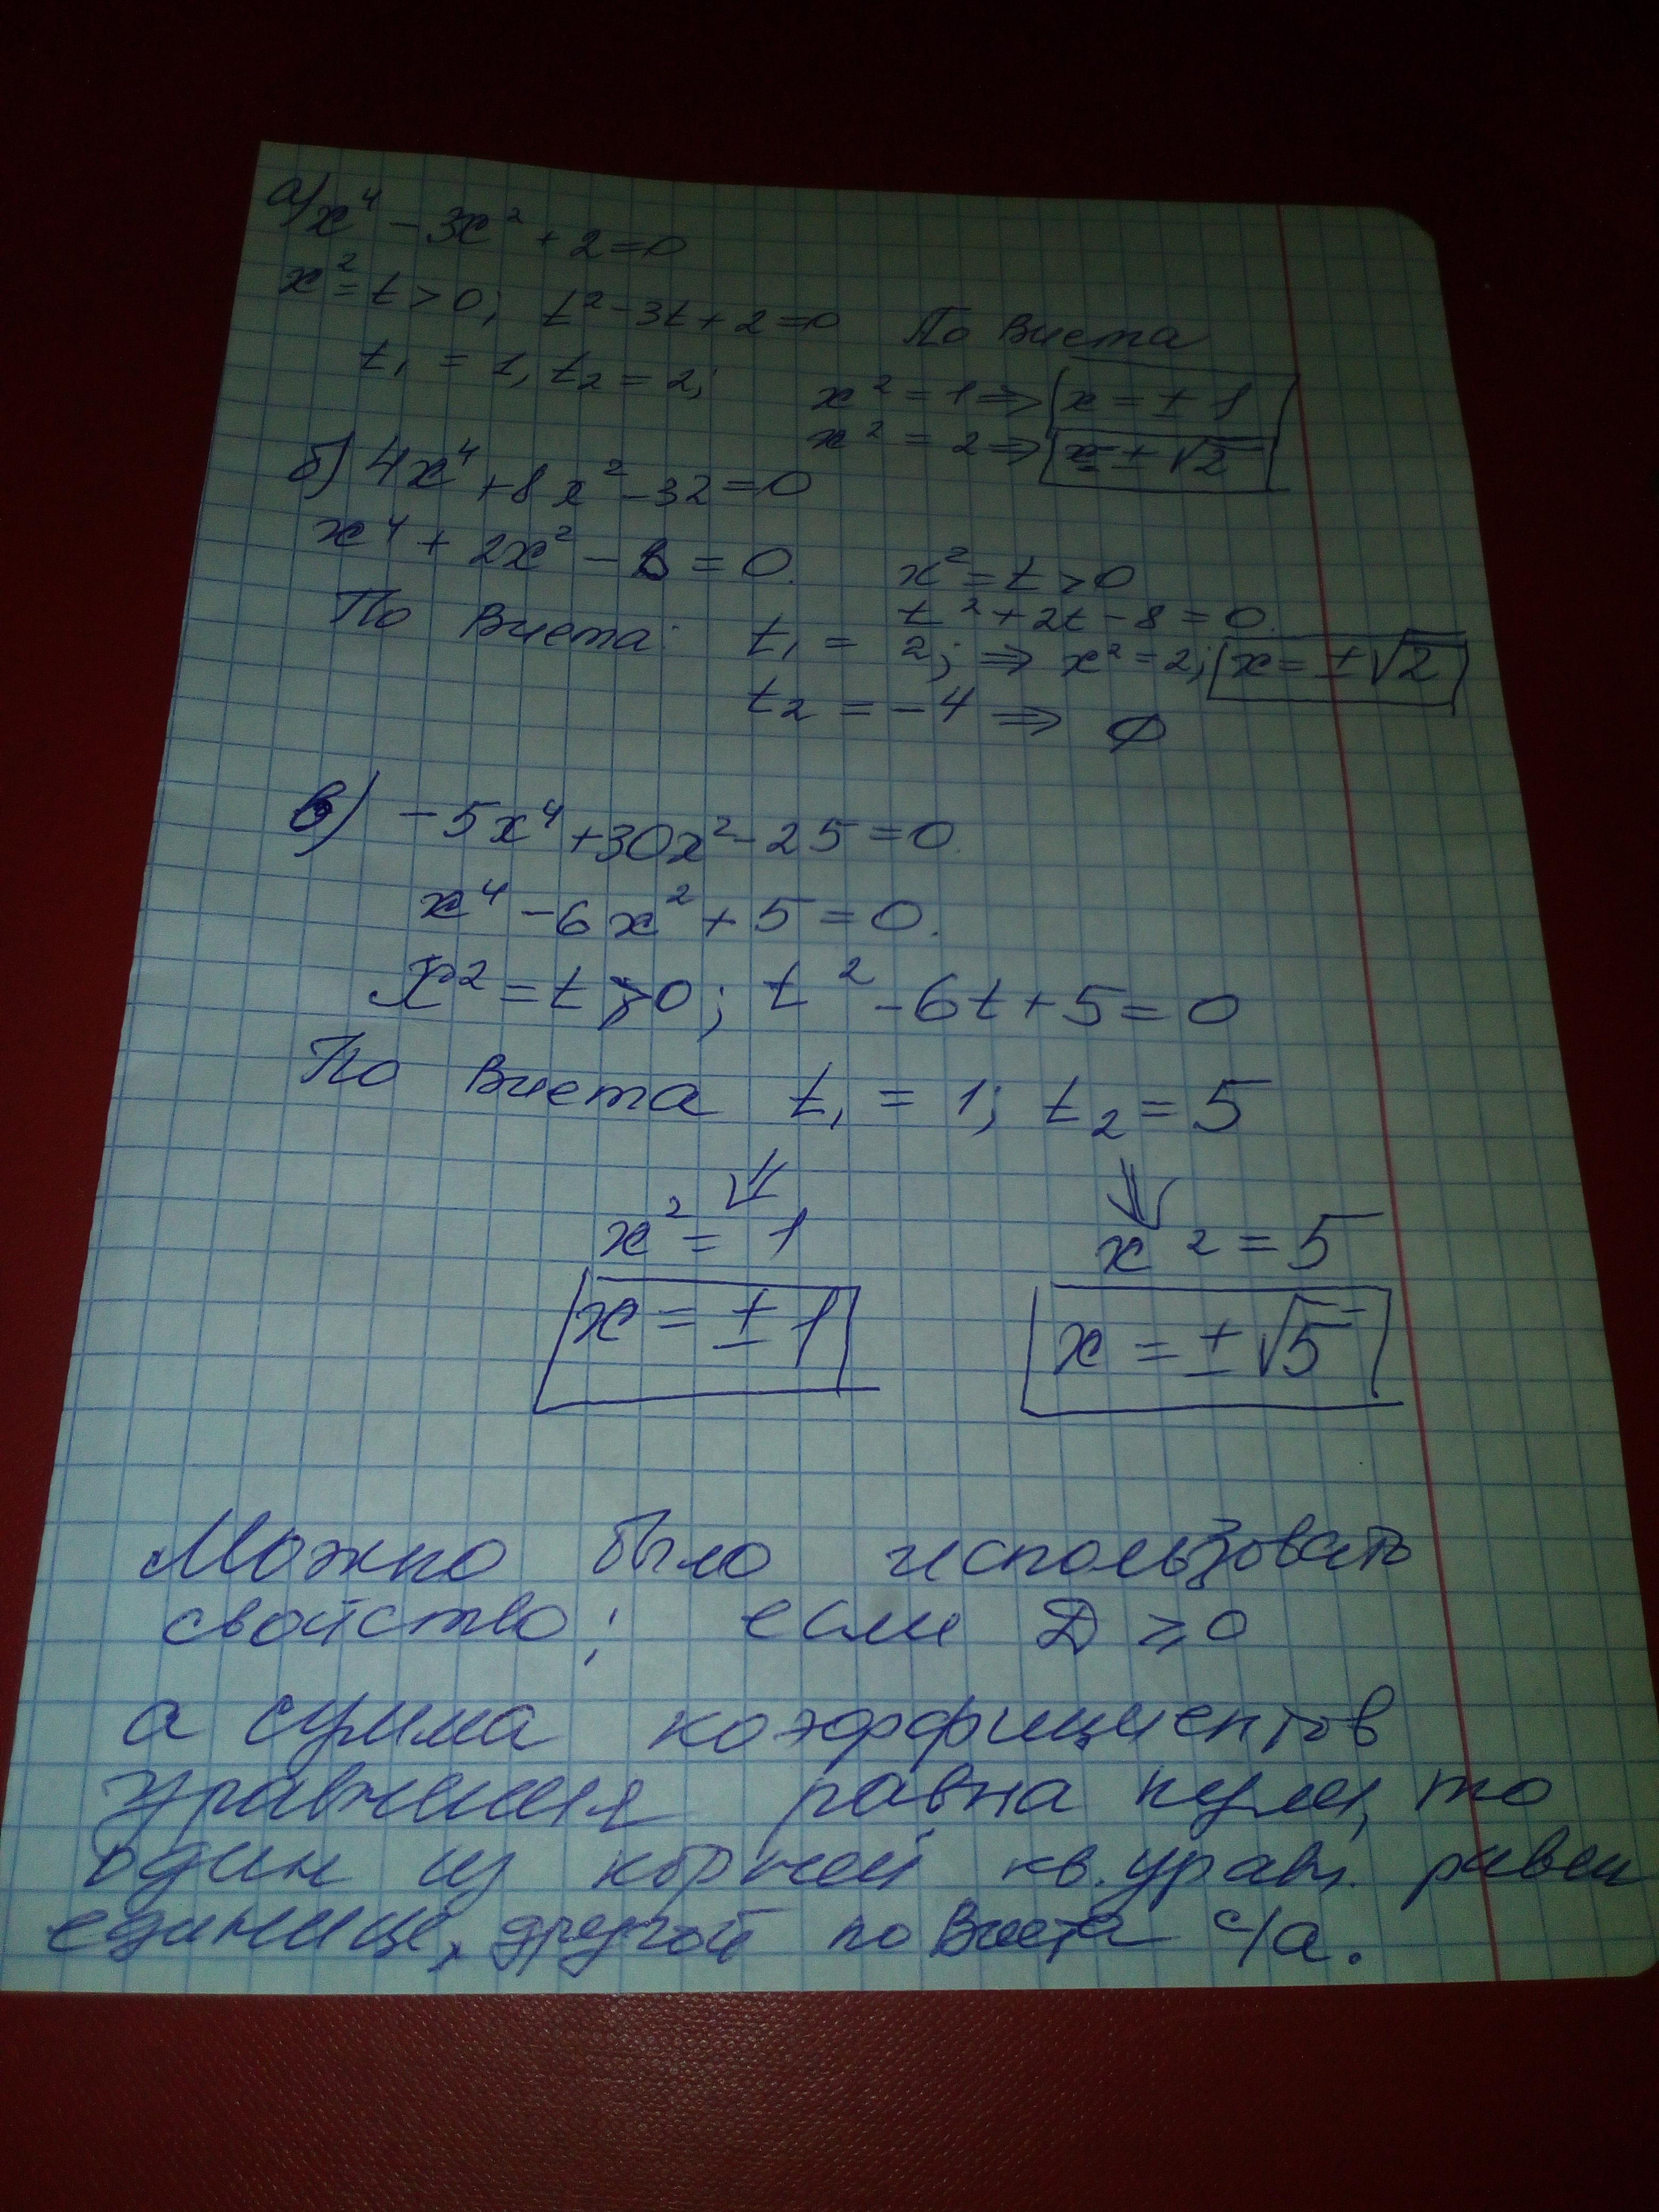 а) x⁴ - 3x² + 2 = 0
x² = t > 0; t² - 3t + 2 = 0 По Виета
t₁ = 1, t₂ = 2; x² = 1 ⇒ x = ± 1
x² = 2 ⇒ x = ± √2
б) 4x⁴ + 8x² - 32 = 0
x⁴ + 2x² - 8 = 0. x² = t > 0
t² + 2t - 8 = 0.
По Виета: t₁ = 2; ⇒ x² = 2; x = ± √2
t₂ = -4 ⇒ ∅
в) -5x⁴ + 30x² - 25 = 0.
x⁴ - 6x² + 5 = 0.
x² = t ⩾ 0; t² - 6t + 5 = 0
По Виета t₁ = 1; t₂ = 5
⇓ ⇓
x² = 1 x² = 5
x = ± 1 x = ± √5
Можно было использовать
свойство; если D ⩾ 0
а сумма коэффициентов
уравнения равна нулю, то
один из корней кв. уравн. равен
единице, другой по Виета c/a.